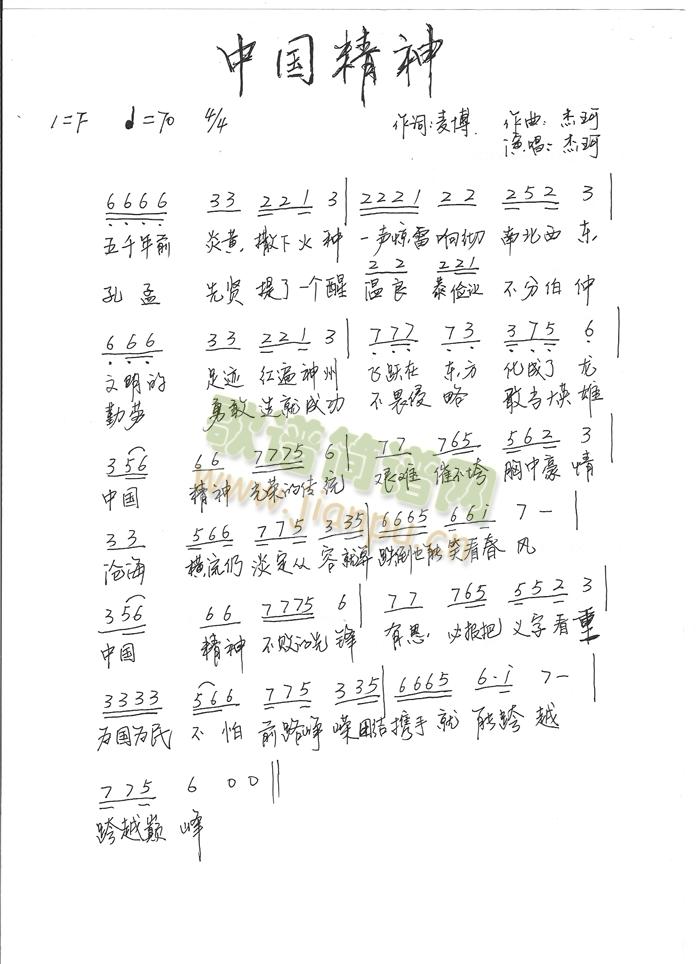 中国精神
1=F ♩=70 4/4 作词:麦博 作曲:杰珂
演唱:杰珂
6666 33 221 3 | 2221 22 252 3 |
五千年前 炎黄 撒下火种 一声惊雷响彻 南北西东
22 221
孔孟 先贤 提了一个醒 温良 恭俭让 不分伯仲
666 33 221 3 | 777 73 375 6 |
文明的 足迹 红遍神州 飞跃在 东方 化成了 龙
勤劳 勇敢 造就成功 不畏侵略 敢当大英雄
356 66 7775 6 | 77 765 562 3 |
中国 精神 光荣的传统 艰难 催不垮 胸中豪情
33 566 775 335 | 6665 66i 7 - |
沧海 横流仍 淡定从容就算 跌倒也能笑看春风
356 66 7775 6 | 77 765 552 3 |
中国 精神 不败的先锋 有恩 必报把 义字看重
3333 566 775 335 | 6665 6·i 7 - |
为国为民 不怕 前路峥嵘团结携手就 能跨越
775 6 0 0 ||
跨越巅峰
歌谱简谱网
www.jianpu.cn